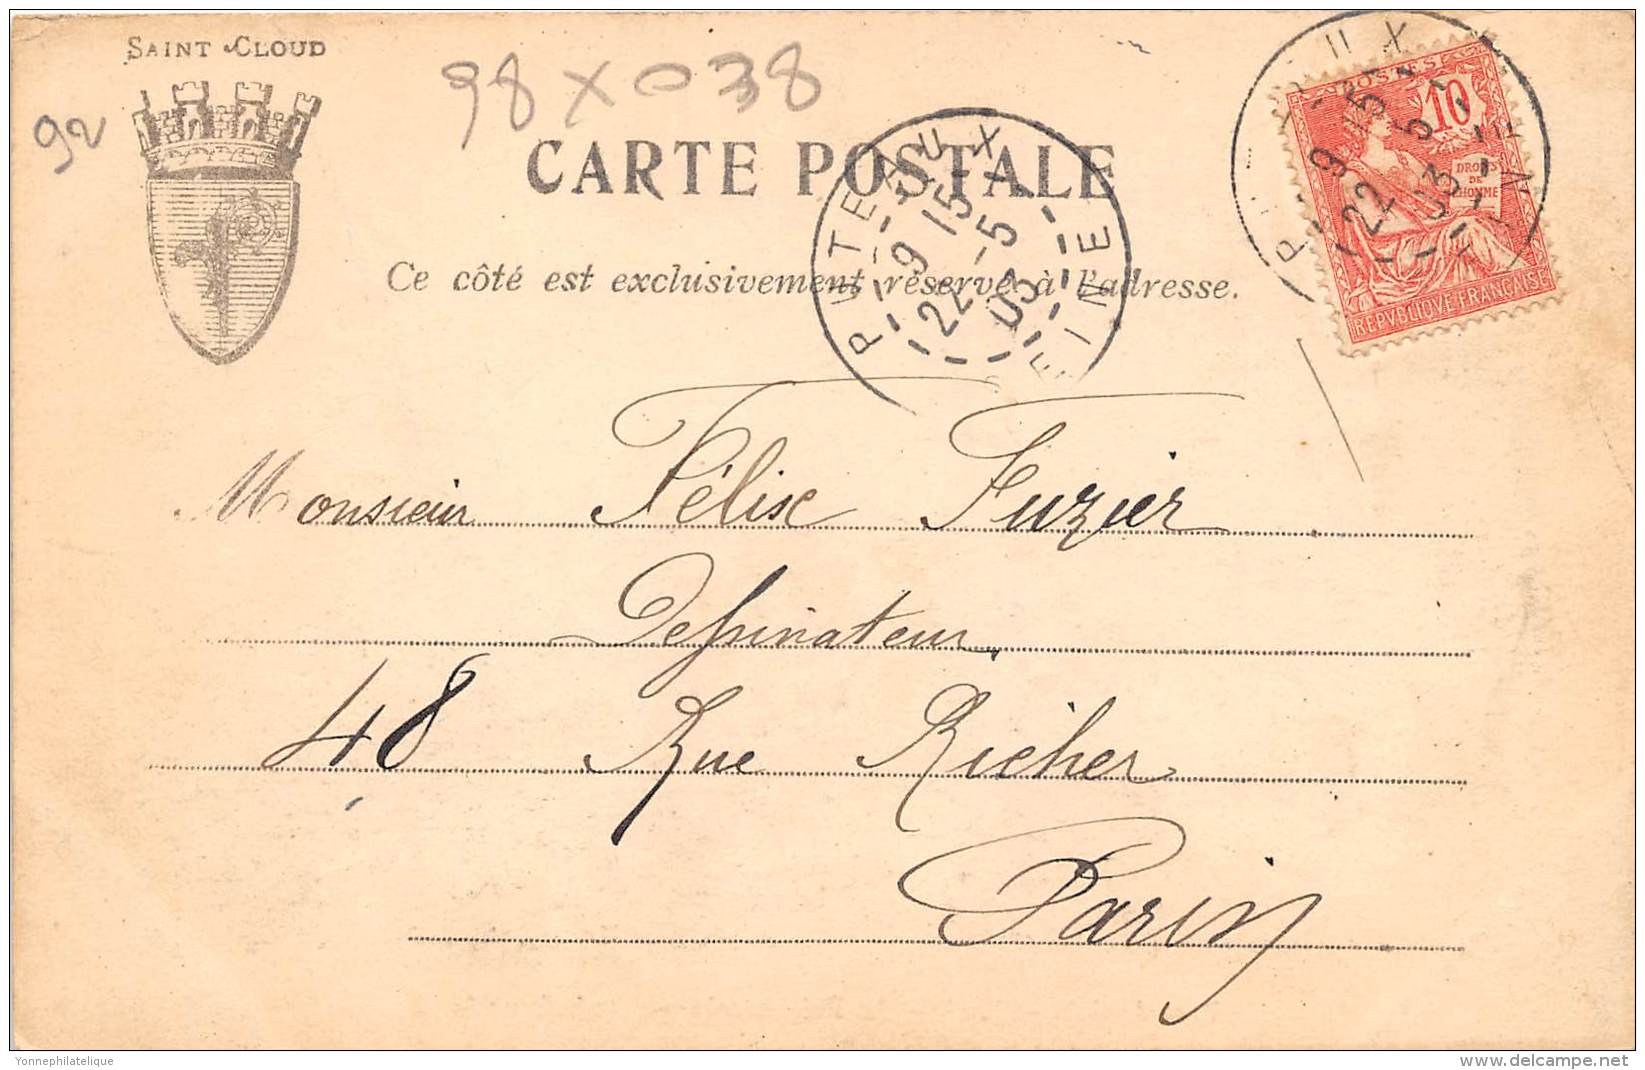 SAINT-CLOUD
98 X 038
92
CARTE POSTALE
Ce côté est exclusivement réservé à l'adresse.
PUTEAUX
9 15
22 -5
03
SEINE
POSTES
10
DROITS
DE
L'HOMME
REPVBLIQVE FRANÇAISE
PUTEAUX
9 15
22 5
03
SEINE
Monsieur Félix Fuzier
Dessinateur
48 Rue Richer
Paris
Yonnephilatelique
https://www.delcampe.net